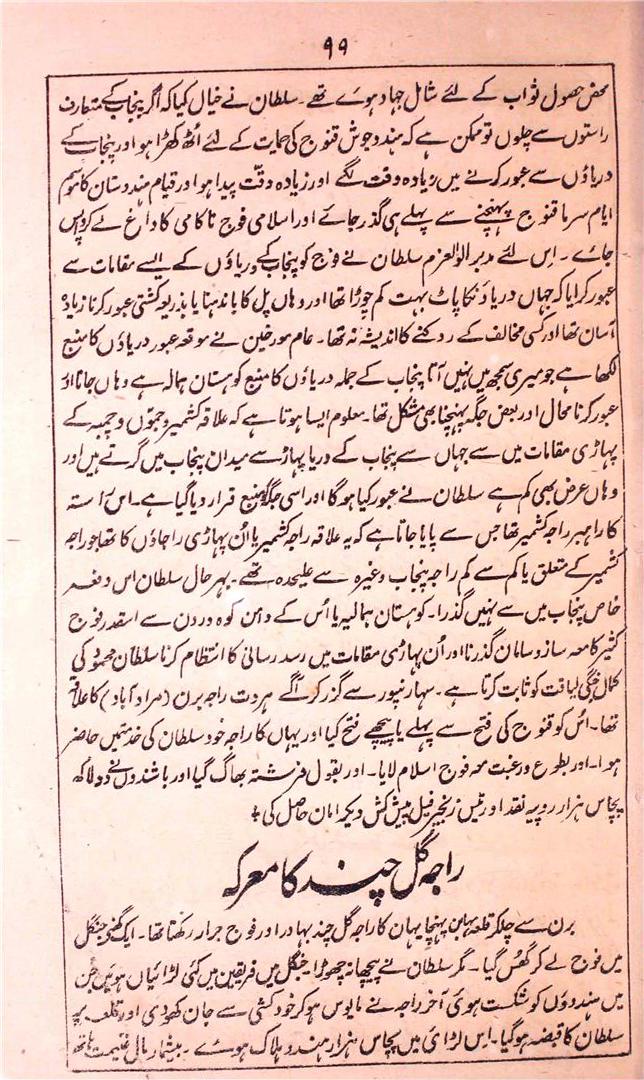 ۹۹
محض حصول ثواب کے لئے شامل جہاد ہوے تھے۔ سلطان نے خیال کیا کہ اگر پنجاب کے متعارف
راستوں سے چلوں تو ممکن ہے کہ ہندو جوش قنوج کی حمایت کے لئے اٹھ کھڑا ہو اور پنجاب کے
دریاؤں سے عبور کرنے میں زیادہ وقت لگے اور زیادہ دقت پیدا ہو اور قیام ہندوستان کا موسم
ایام سرما قنوج پہنچنے سے پہلے ہی گذر جائے اور اسلامی فوج ناکامی کا داغ لے کر واپس
جاے۔ اس لئے مدبر الوالعزم سلطان نے فوج کو پنجاب کے دریاؤں کے ایسے مقامات سے
عبور کرایا کہ جہاں دریاؤنکا پاٹ بہت کم چوڑا تھا اور وہاں پل کا باندھنا یا بذریعہ کشتی عبور کرنا زیادہ
آسان تھا اور کسی مخالف کے روکنے کا اندیشہ نہ تھا۔ عام مورخین نے موقعہ عبور دریاؤں کا منبع
لکھا ہے جو میری سمجھ میں نہیں آتا پنجاب کے جملہ دریاؤں کا منبع کوہستان ہمالہ ہے وہاں جانا اور
عبور کرنا محال اور بعض جگہ پہنچنا بھی مشکل تھا۔ معلوم ایسا ہوتا ہے کہ علاقہ کشمیر و جموں و چمبہ کے
پہاڑی مقامات میں سے جہاں سے پنجاب کے دریا پہاڑ سے میدان پنجاب میں گرتے ہیں اور
وہاں عرض بھی کم ہے سلطان نے عبور کیا ہو گا اور اسی جگہ کو منبع قرار دیا گیا ہے۔ اس راستہ
کا راہبر راجہ کشمیر تھا جس سے پایا جاتا ہے کہ یہ علاقہ راجہ کشمیر یا اُن پہاڑی راجاؤں کا تھا جو راجہ
کشمیر کے متعلق یا کم سے کم راجہ پنجاب وغیرہ سے علیحدہ تھے۔ بہر حال سلطان اس دفعہ
خاص پنجاب میں سے نہیں گذرا۔ کوہستان ہمالیہ یا اُس کے دامن کوہ و درون سے اسقدر فوج
کثیر کا معہ ساز و سامان گذرنا اور اُن پہاڑی مقامات میں رسد رسانی کا انتظام کرنا سلطان محمود کی
کمال جنگی لیاقت کو ثابت کرتا ہے۔ سہارنپور سے گزر کر آگے ہروت راجہ برن (مراد آباد) کا علاقہ
تھا۔ اُس کو قنوج کی فتح سے پہلے یا پیچھے فتح کیا اور یہاں کا راجہ خود سلطان کی خدمتیں حاضر
ہوا۔ اور بطوع و رغبت معہ فوج اسلام لایا۔ اور بقول فرشتہ بھاگ گیا اور باشندوں نے دو لاکھ
پچاس ہزار روپیہ نقد اور تیس زنجیر فیل پیش کش دیکر امان حاصل کی
راجہ گل چند کا معرکہ
برن سے چلکر قلعہ مہابن پہنچا یہان کا راجہ گل چند بہادر اور فوج جرار رکھتا تھا۔ ایک گھنی جنگل
میں فوج لے کر گھس گیا۔ مگر سلطان نے پیچھا نہ چھوڑا جنگل میں فریقین میں کئی لڑائیاں ہوئیں جن
میں ہندوؤں کو شکست ہوئی آخر راجہ نے مایوس ہو کر خودکشی سے جان کھو دی اور قلعہ پر
سلطان کا قبضہ ہو گیا۔ اس لڑائی میں پچاس ہزار ہندو ہلاک ہوے۔ بیشمار مال غنیمت ہاتھ